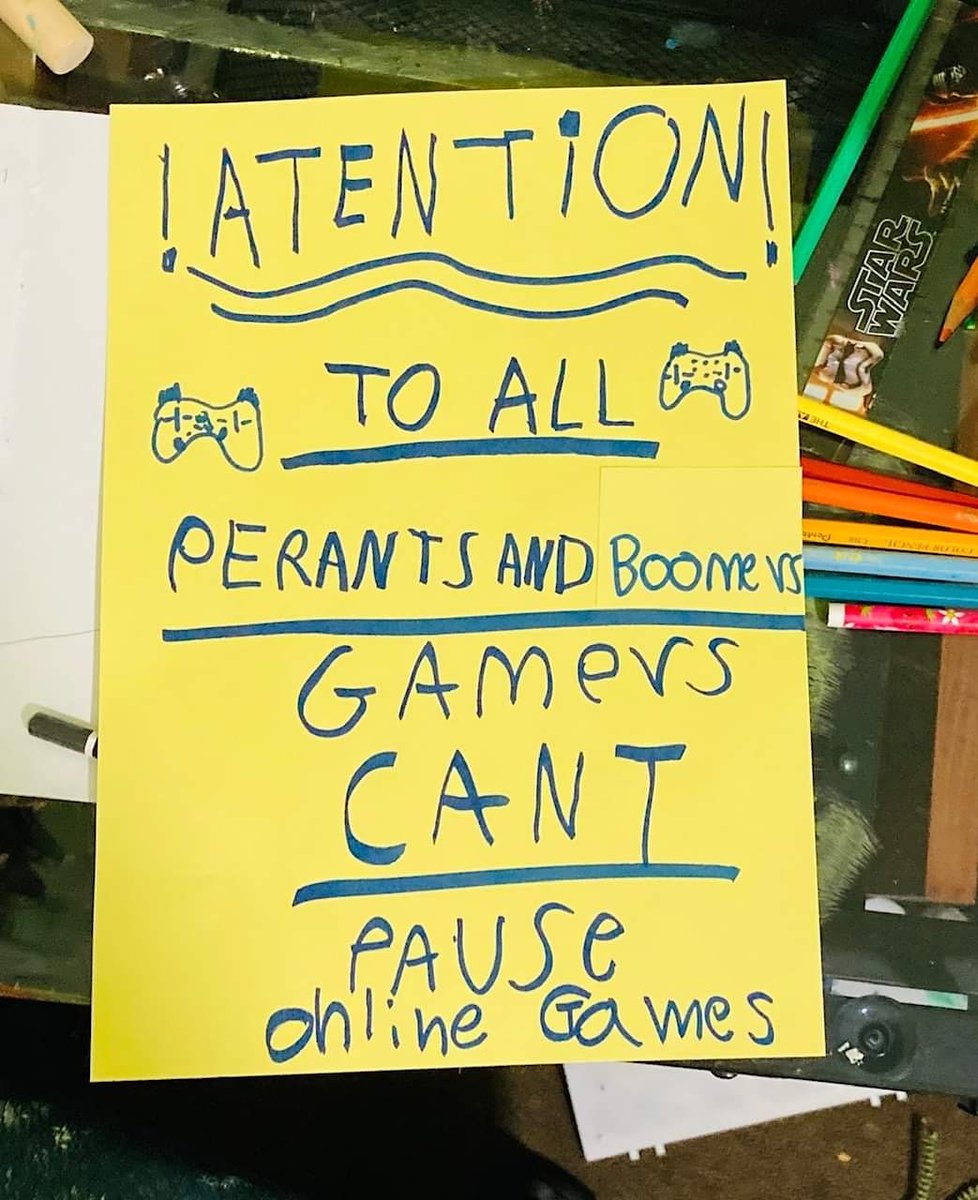 !ATENTiON!
TO ALL
PERANTS AND BOOmers
GAmers
CANT
PAUSe
online Games
STAR
WARS